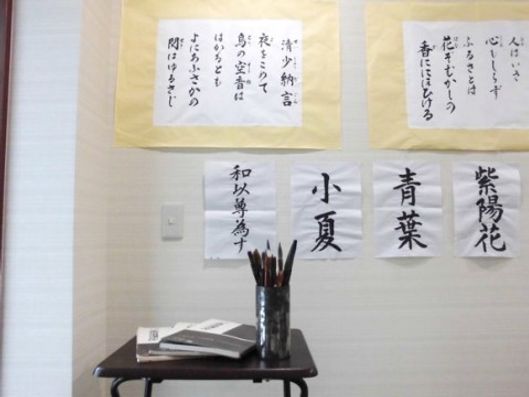 人はいさ
心もしらず
ふるさとは
花ぞむかしの
香ににほひける
清少納言
夜をこめて
鳥の空音は
はかるとも
よにあふさかの
関はゆるさじ
紫陽花
青葉
小夏
和以尊為す